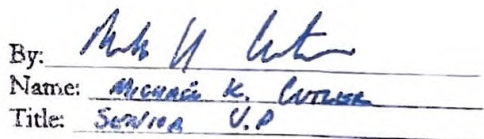 By:
Name: MICHAEL K. CUTLER
Title: SENIOR V.P